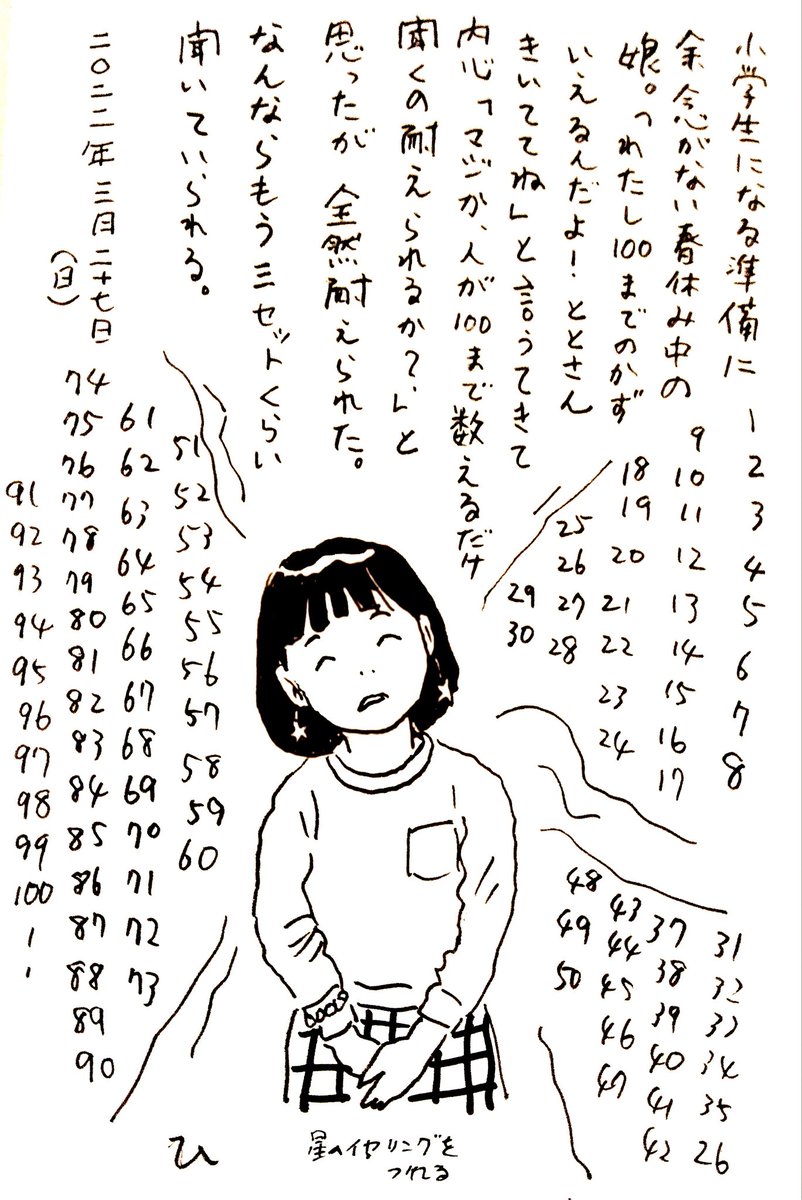 小学生になる準備に
余念がない春休み中の
娘。「わたし100までのかず
いえるんだよ！ととさん
きいててね」と言うてきて
内心「マジか、人が100まで数えるだけ
聞くの耐えられるか？」と
思ったが 全然耐えられた。
なんならもう三セットくらい
聞いていられる。
二〇二二年 三月二十七日
（日）
1 2 3 4 5 6 7 8
9 10 11 12 13 14 15 16 17
18 19 20 21 22 23 24
25 26 27 28
29 30
31 32 33 34 35 26
37 38 39 40 41 42
43 44 45 46 47
48 49 50
51 52 53 54 55 56 57 58 59 60
61 62 63 64 65 66 67 68 69 70 71 72 73
74 75 76 77 78 79 80 81 82 83 84 85 86 87 88 89 90
91 92 93 94 95 96 97 98 99 100!
星のイヤリングを
つけてる
ひ